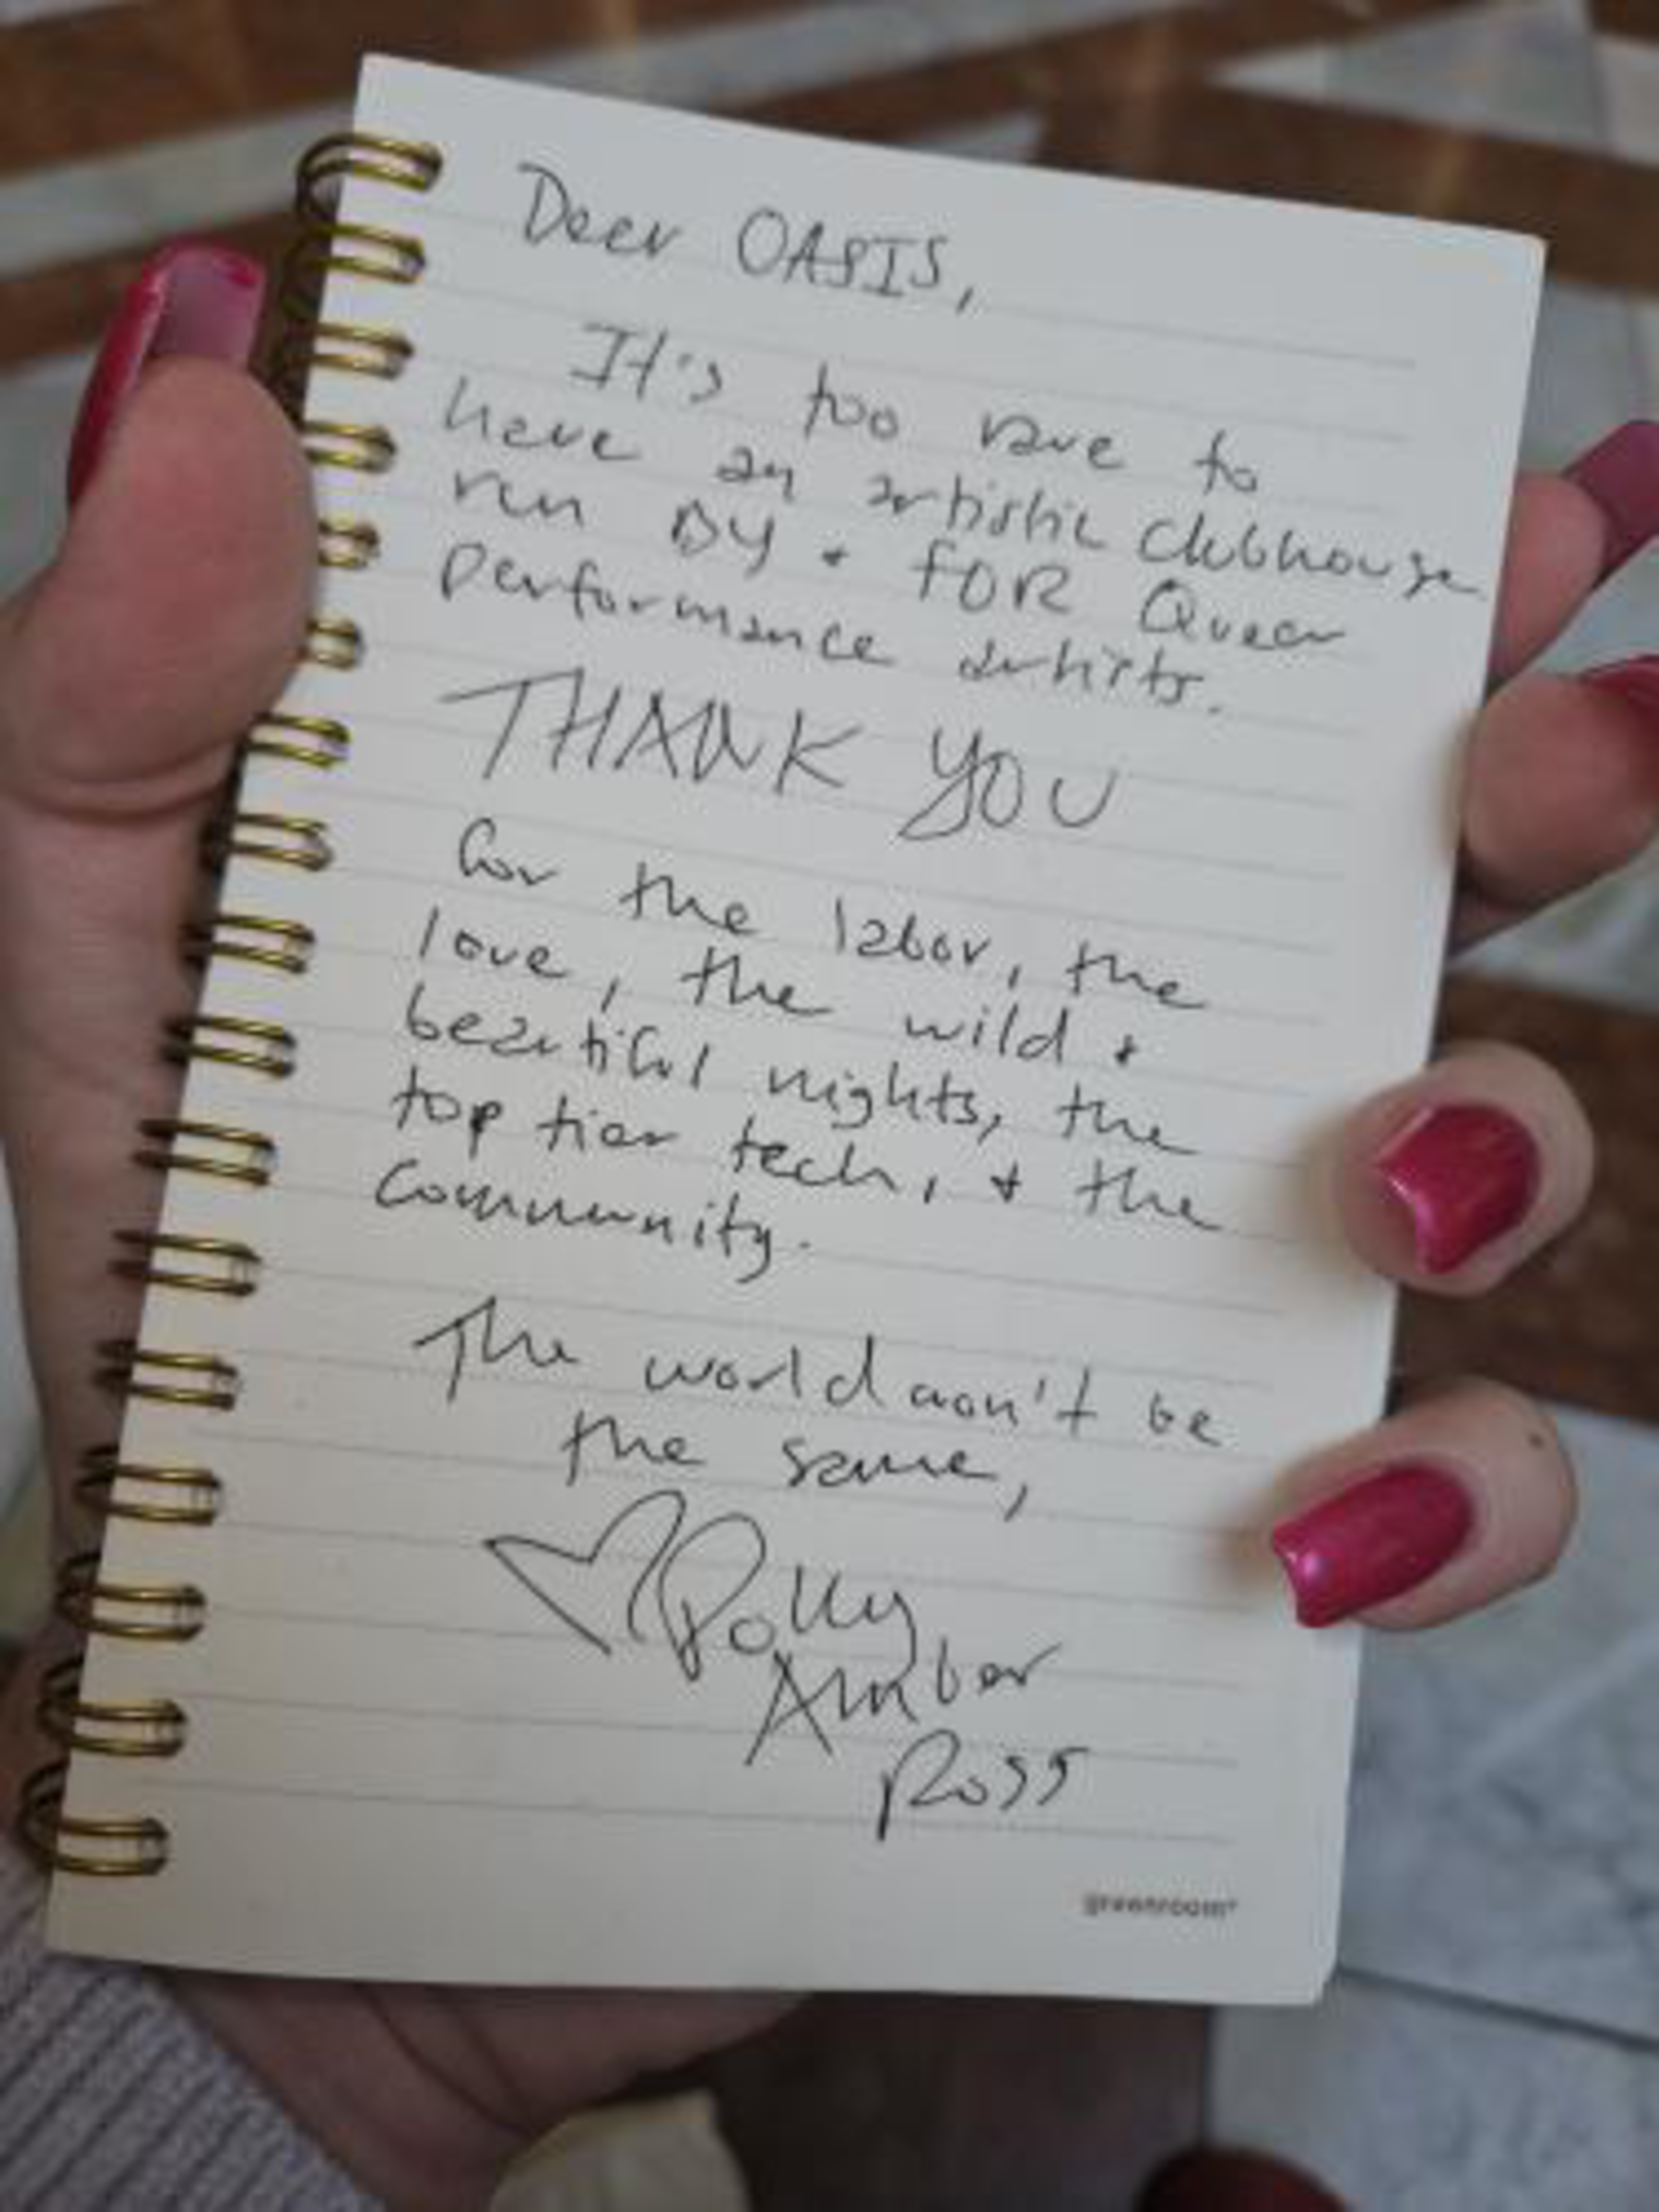 Dear OASIS,
It's too rare to
have an artistic clubhouse
run BY + FOR Queer
performance artists.
THANK YOU
for the labor, the
love, the wild +
beautiful nights, the
top tier tech, + the
community.
The world won't be
the same,
Polly
Amber
Ross
greenroom*